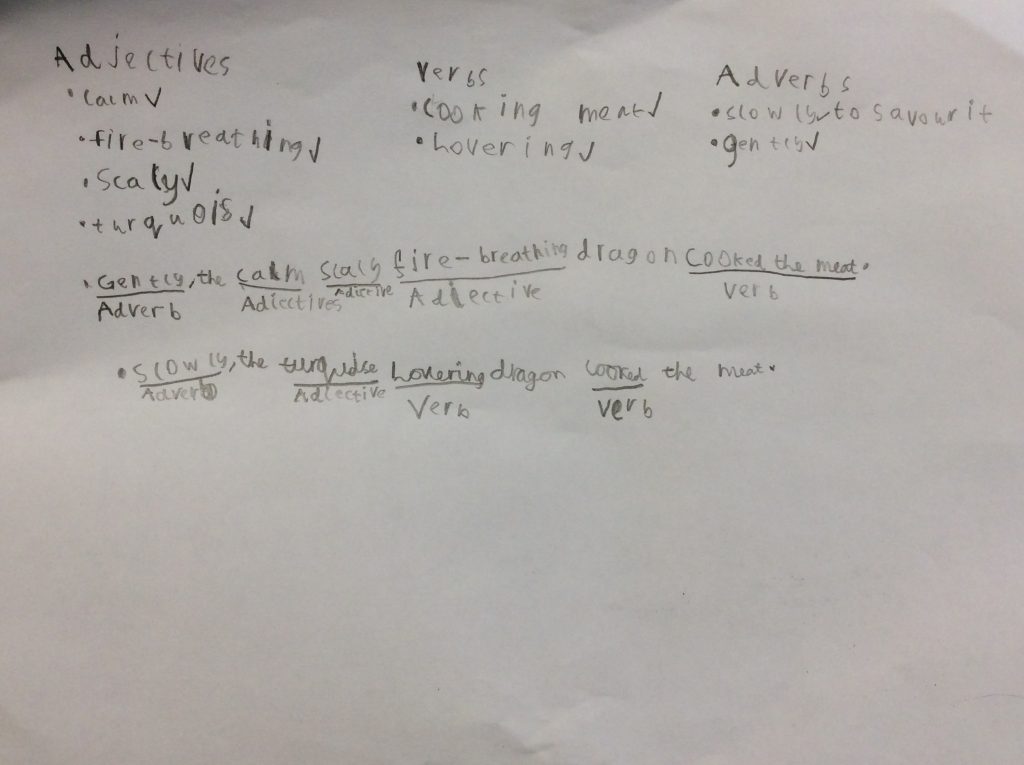 Adjectives Verbs Adverbs
• calm✓ • cooking meat✓ • slowly✓ to savour it
• fire-breathing✓ • hovering✓ • gently✓
• scaly✓
• turquois✓
• Gently, the calm scaly fire-breathing dragon cooked the meat.
Adverb Adjectives Adjective Adjective verb
• Slowly, the turquoise hovering dragon cooked the meat.
Adverb Adjective Verb verb